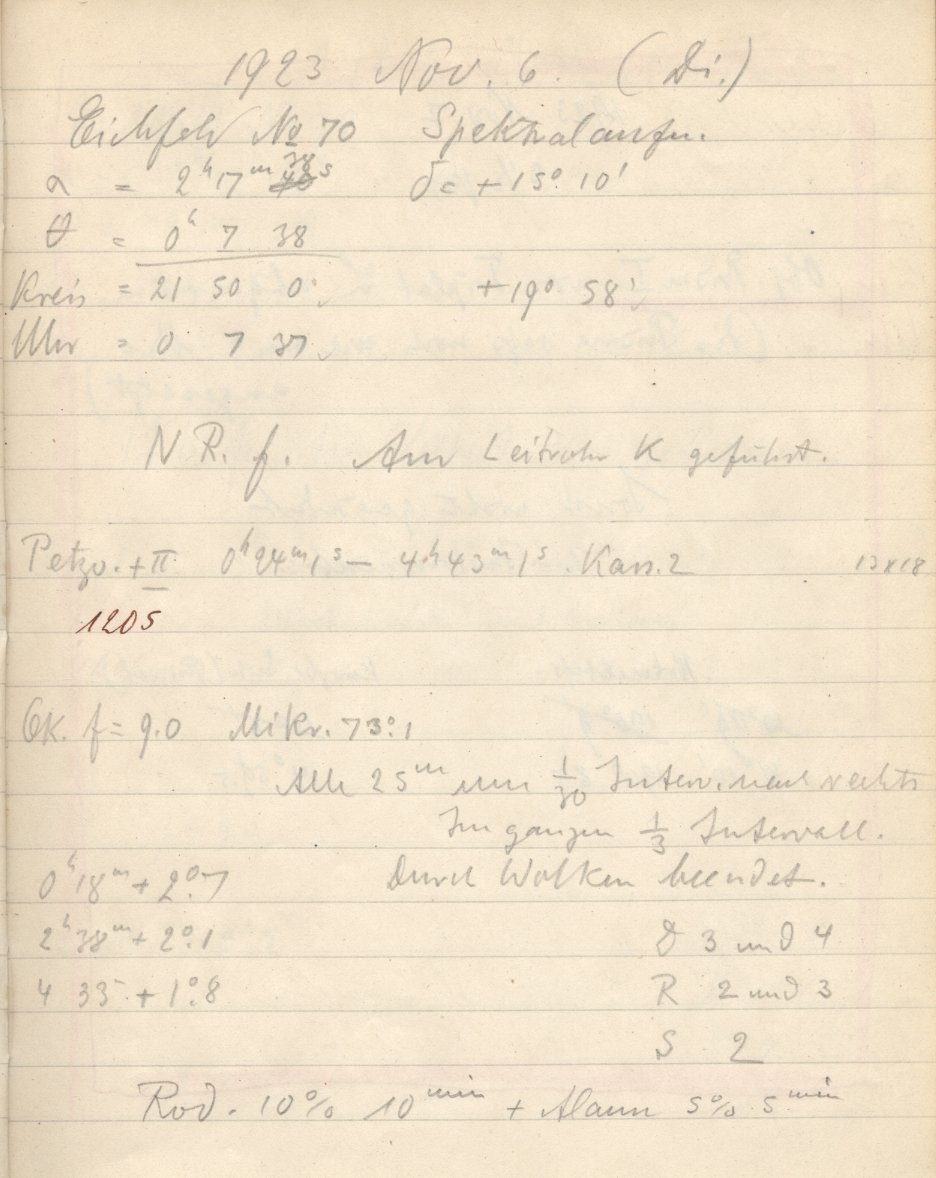 1923 Nov. 6. (Di.)
Eichfeld No 70 Spektralaufn.
α = 2h 17m 38s δ = +15° 10'
θ = 0h 7 38
Kreis = 21 50 0 +19° 58'
Uhr = 0 7 37
N R. f. Am Leitrohr K geführt.
Petzv. + II 0h 24m 1s — 4h 43m 1s. Kass. 2 13x18
1205
Ok. f = 9.0 Mikr. 73°.1
Alle 25m um 1/30 Interv. nach rechts
Im ganzen 1/3 Intervall.
0h 18m + 2°.7 Durch Wolken beendet.
2h 38m + 2°.1 D 3 und 4
4 35 + 1°.8 R 2 und 3
S 2
Rod. 10% 10 min + Alaun 5% 5 min